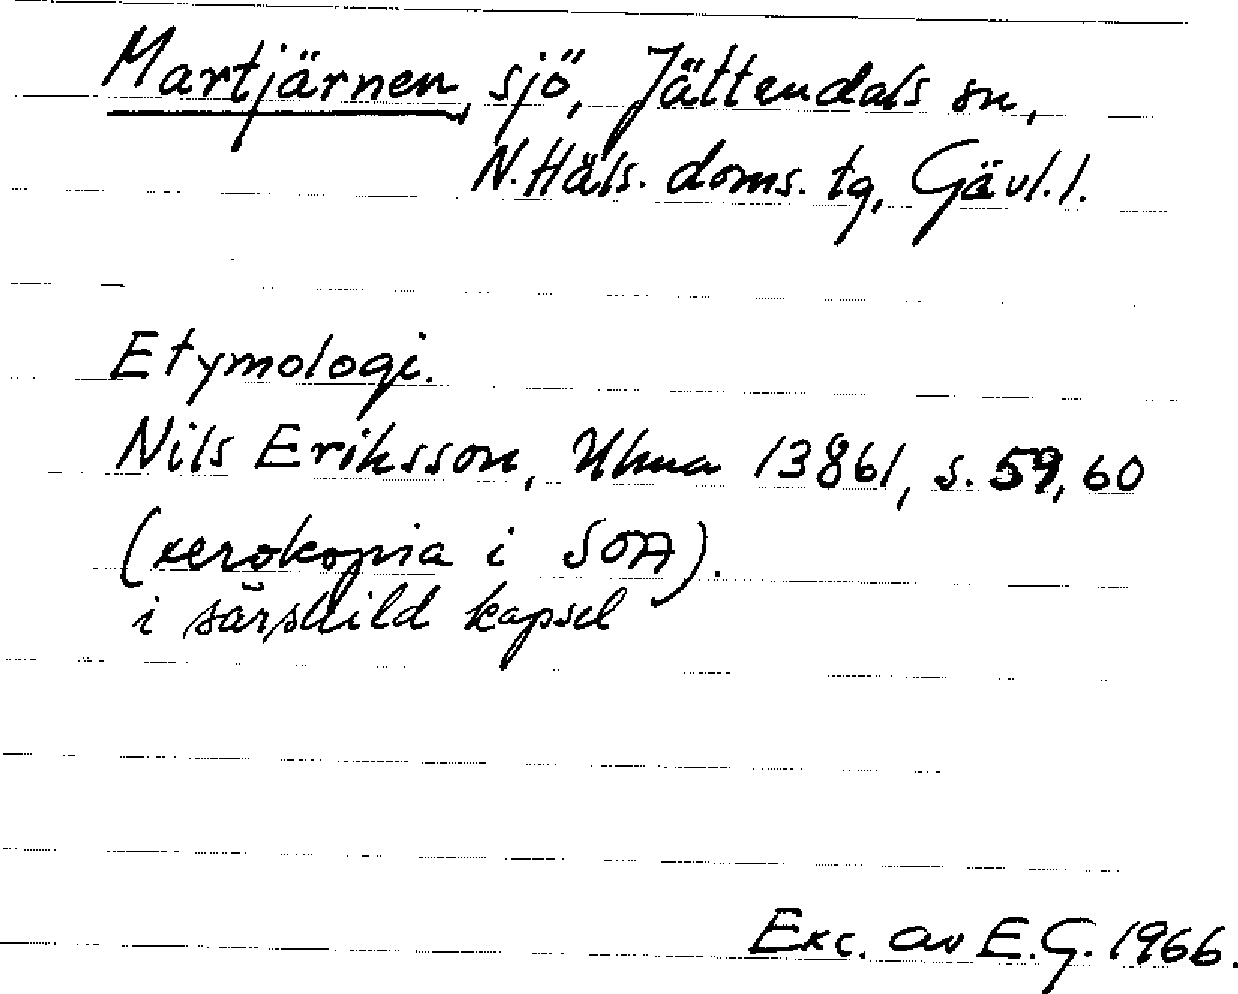 Martjärnen, sjö, Jättendals sn,
N. Häls. doms. tg, Gävl. l.
Etymologi.
Nils Eriksson, Ulma 13861, s. 59, 60
(xerokopia i SOA).
i särskild kapsel
Exc. av E.G. 1966.